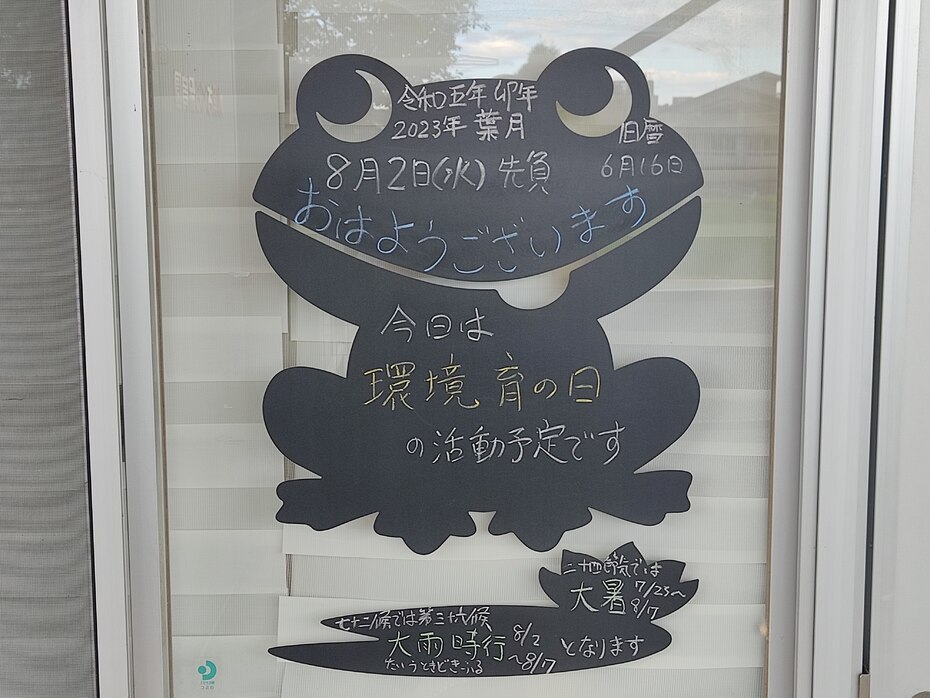 令和五年 卯年
2023年 葉月
旧暦
8月2日(水) 先負
6月16日
おはようございます
今日は
環境育の日
の活動予定です
二十四節気では
大暑 7/23～
8/7
七十二候では第三十六候
大雨時行 8/2
～8/7
となります
たいうときどきふる